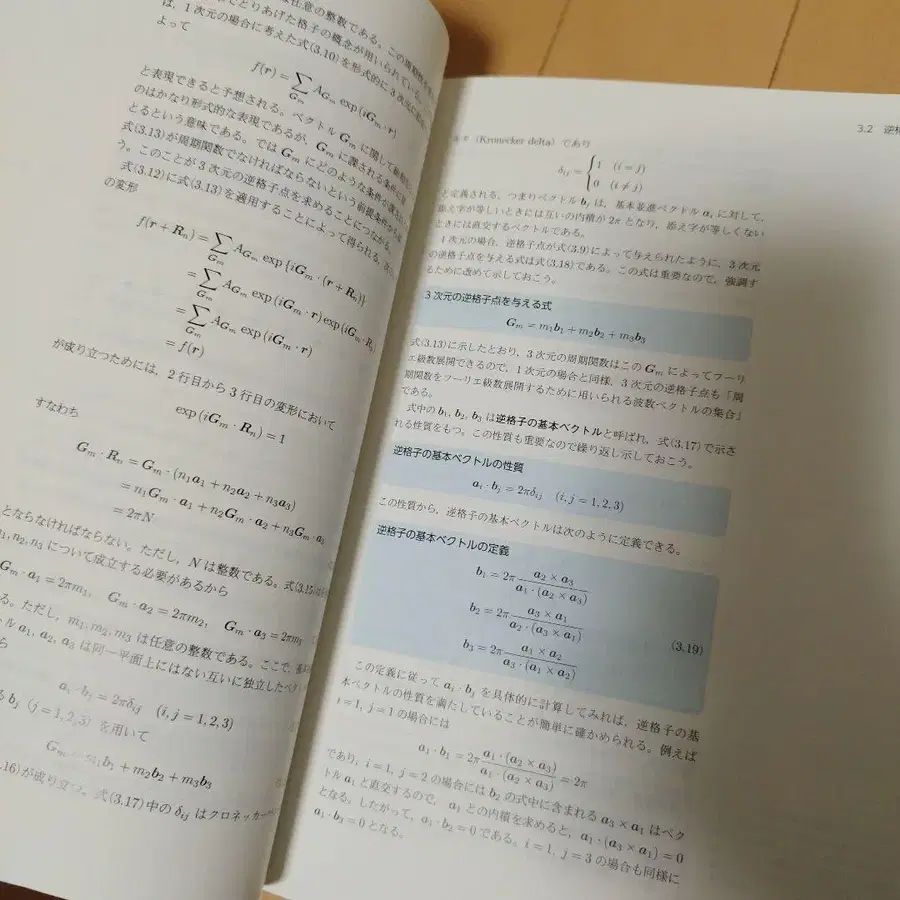 は任意の整数である。この周期性
でとりあげた格子の概念が用いられている。
は，1次元の場合に考えた式(3.10)を形式的に3次元に
よって
f(r) = ∑_{G_m} A_{G_m} exp(iG_m · r)
と表現できると予想される。ベクトル G_m に関して
のはかなり形式的な表現であるが，G_m に課される条件に
とるという意味である。では G_m にどのような条件が
式(3.13)が周期関数でなければならないという前提条件から
う。このことが3次元の逆格子点を求めることにつながる。
式(3.12)に式(3.13)を適用することによって得られる，
の変形
f(r + R_n) = ∑_{G_m} A_{G_m} exp{iG_m · (r + R_n)}
= ∑_{G_m} A_{G_m} exp(iG_m · r) exp(iG_m · R_n)
= ∑_{G_m} A_{G_m} exp(iG_m · r)
= f(r)
が成り立つためには，2行目から3行目の変形において
exp(iG_m · R_n) = 1
すなわち
G_m · R_n = G_m · (n_1a_1 + n_2a_2 + n_3a_3)
= n_1G_m · a_1 + n_2G_m · a_2 + n_3G_m · a_3
= 2πN
とならなければならない。ただし，N は整数である。式(3.15)
n_1, n_2, n_3 について成立する必要があるから
G_m · a_1 = 2πm_1, G_m · a_2 = 2πm_2, G_m · a_3 = 2πm_3
る。ただし，m_1, m_2, m_3 は任意の整数である。ここで，
トル a_1, a_2, a_3 は同一平面上にはない互いに独立したベ
ら
a_i · b_j = 2πδ_{ij} (i, j = 1, 2, 3)
る b_j (j = 1, 2, 3) を用いて
G_m = m_1b_1 + m_2b_2 + m_3b_3
.16)が成り立つ。式(3.17)中の δ_{ij} はクロネッカー
3.2 逆格
(Kronecker delta) であり
δ_{ij} = { 1 (i = j)
0 (i ≠ j)
と定義される。つまりベクトル b_j は，基本並進ベクトル a_i に対して，
添え字が等しいときには互いの内積が 2π となり，添え字が等しくない
ときには直交するベクトルである。
1次元の場合，逆格子点が式(3.9)によって与えられたように，3次元
の逆格子点を与える式は式(3.18)である。この式は重要なので，強調す
るために改めて示しておこう。
3次元の逆格子点を与える式
G_m = m_1b_1 + m_2b_2 + m_3b_3
式(3.13)に示したとおり，3次元の周期関数はこの G_m によってフーリ
エ級数展開できるので，1次元の場合と同様，3次元の逆格子点も「周
期関数をフーリエ級数展開するために用いられる波数ベクトルの集合」
である。
式中の b_1, b_2, b_3 は逆格子の基本ベクトルと呼ばれ，式(3.17)で示さ
れる性質をもつ。この性質も重要なので繰り返し示しておこう。
逆格子の基本ベクトルの性質
a_i · b_j = 2πδ_{ij} (i, j = 1, 2, 3)
この性質から，逆格子の基本ベクトルは次のように定義できる。
逆格子の基本ベクトルの定義
b_1 = 2π (a_2 × a_3)/(a_1 · (a_2 × a_3))
b_2 = 2π (a_3 × a_1)/(a_2 · (a_3 × a_1))
b_3 = 2π (a_1 × a_2)/(a_3 · (a_1 × a_2)) (3.19)
この定義に従って a_i · b_j を具体的に計算してみれば，逆格子の基
本ベクトルの性質を満たしていることが簡単に確かめられる。例えば
i = 1, j = 1 の場合には
a_1 · b_1 = 2π (a_1 · (a_2 × a_3))/(a_1 · (a_2 × a_3)) = 2π
であり，i = 1, j = 2 の場合には b_2 の式中に含まれる a_3 × a_1 はベク
トル a_1 と直交するので，a_1 との内積を求めると，a_1 · (a_3 × a_1) = 0
となる。したがって，a_1 · b_2 = 0 である。i = 1, j = 3 の場合も同様に
a_1 · b_3 = 0 となる。